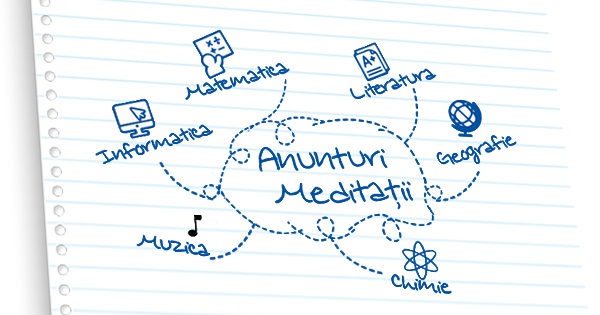 Matematica
Literatura
Informatica
Geografie
Anunturi
Meditații
Muzica
Chimie
A+